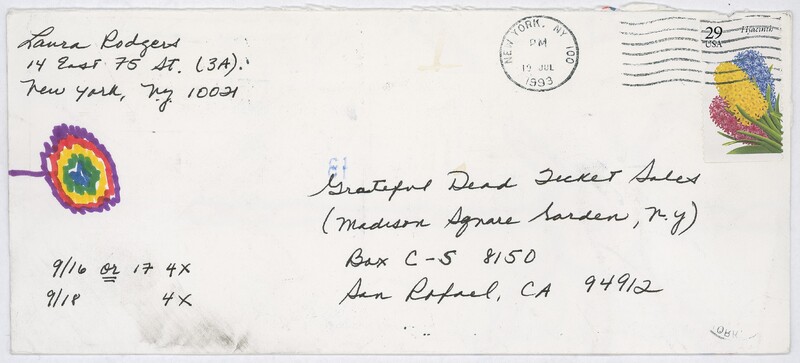 Laura Rodgers
14 East 75 St. (3A).
New York, Ny 10021
NEW YORK, NY 100
PM
19 JUL
1993
29
USA
Hyacinth
Grateful Dead Ticket Sales
(Madison Square Garden, N.Y)
Box C-S 8150
San Rafael, CA 94912
9/16 or 17 4X
9/18 4X